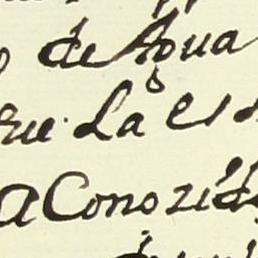 de Agua
La es
a Conozid